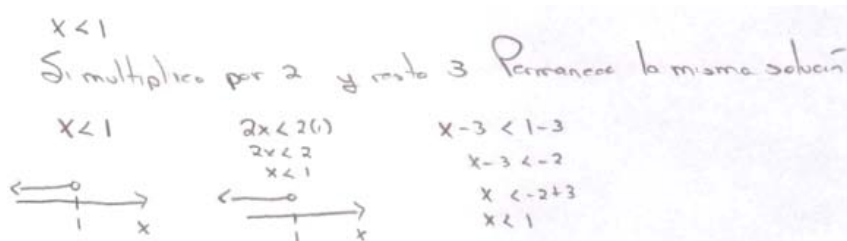 x < 1
Si multiplico por 2 y resto 3 Permanece la misma solución
x < 1
1 x
2x < 2(1)
2x < 2
x < 1
1 x
x - 3 < 1 - 3
x - 3 < -2
x < -2 + 3
x < 1